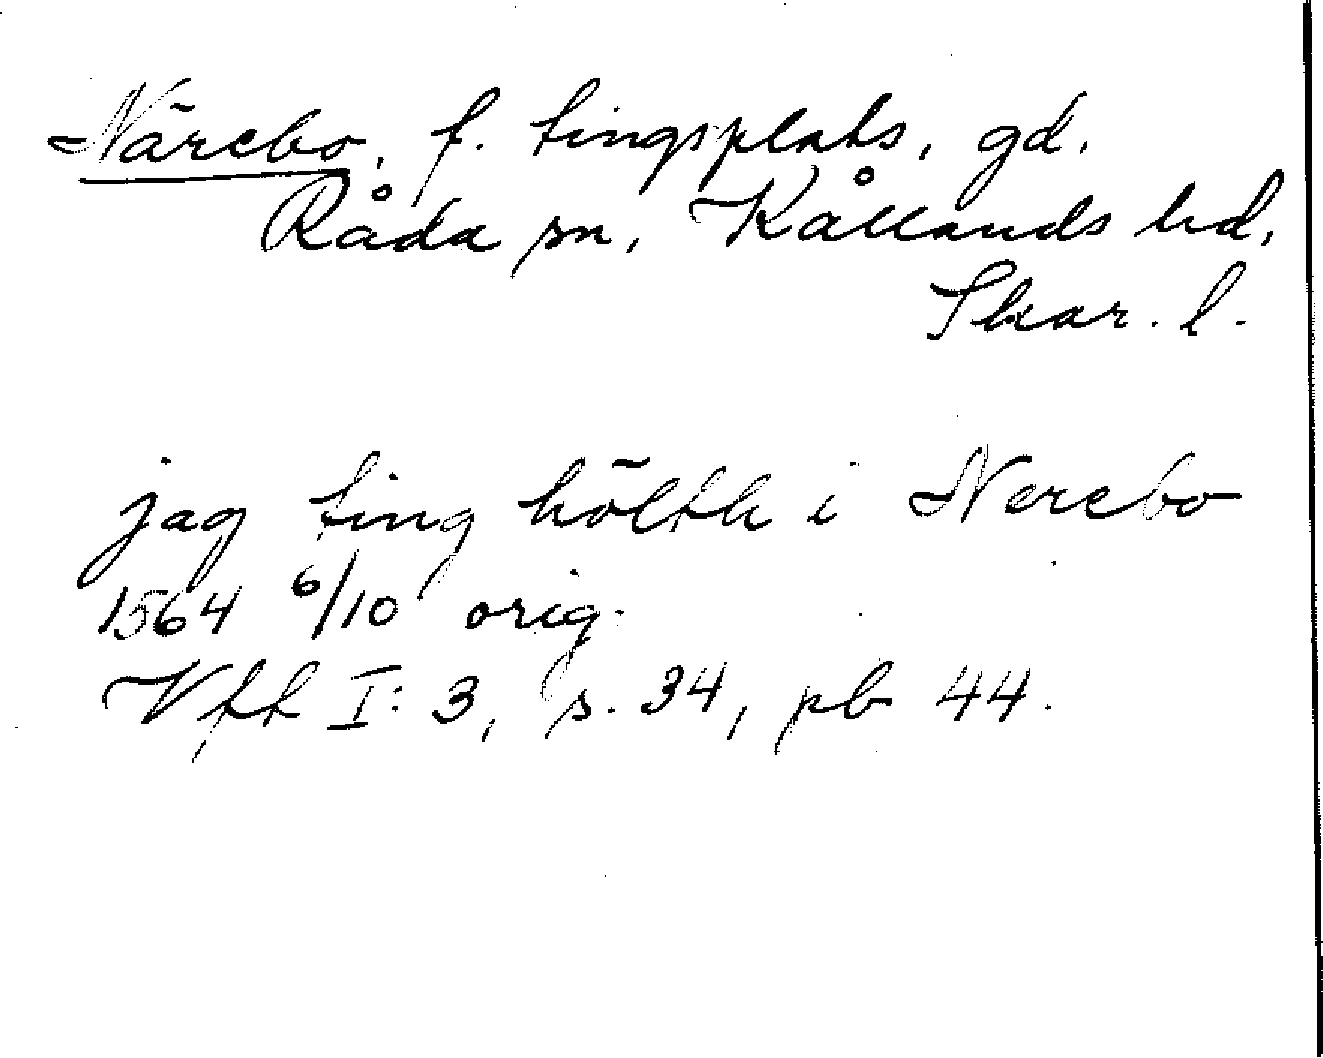 Närebo, f. tingsplats, gd.
Råda sn, Kållands hd,
Skar. l.
jag ting hölth i Nerebo
1564 6/10 orig.
Vfh I: 3, s. 34, pb 44.